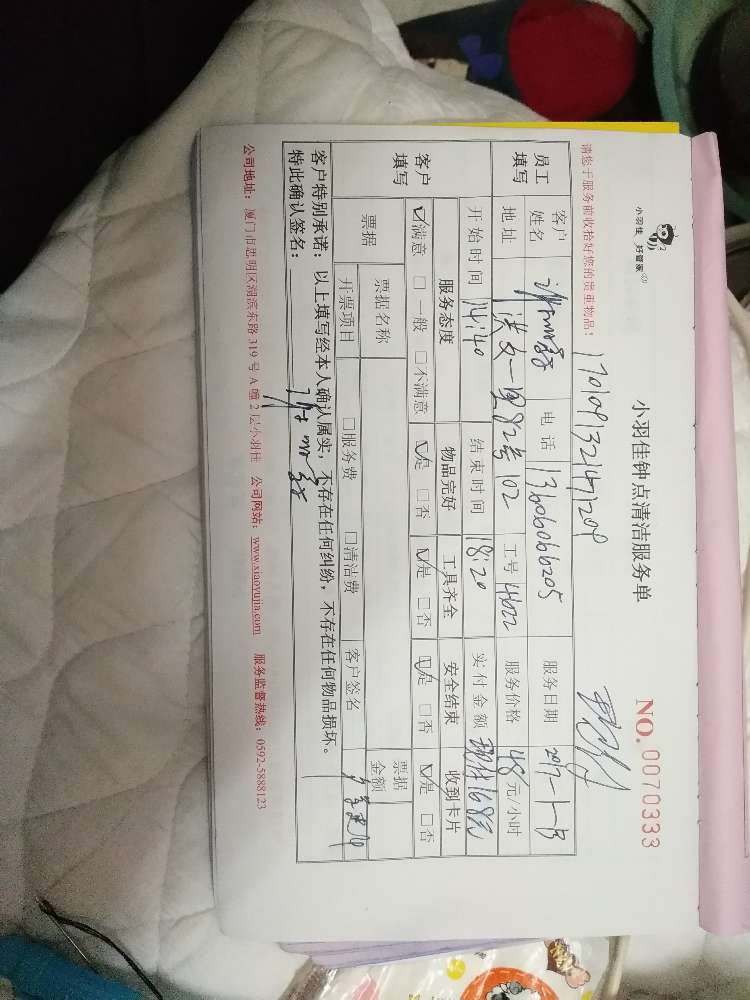 小羽佳 好管家
小羽佳钟点清洁服务单
NO. 0070333
请您于服务前收拾好您的贵重物品！
员工填写 客户姓名 电话 13606066205 服务日期 2017-1-13
地址 洪文一里82号102 工号 4622 服务价格 48元/小时
开始时间 14:40 结束时间 18:20 实付金额 168元
客户填写 服务态度 物品完好 工具齐全 安全结束 收到卡片
☑满意 □一般 □不满意 ☑是 □否 ☑是 □否 ☑是 □否 ☑是 □否
票据 票据名称 票据金额
开票项目 □服务费 □清洁费 客户签名
客户特别承诺：以上填写经本人确认属实，不存在任何纠纷，不存在任何物品损坏。
特此确认签名：
公司地址：厦门市思明区湖滨东路319号A幢2层小羽佳 公司网站：www.xiaoyujia.com 服务监督热线：0592-5888123